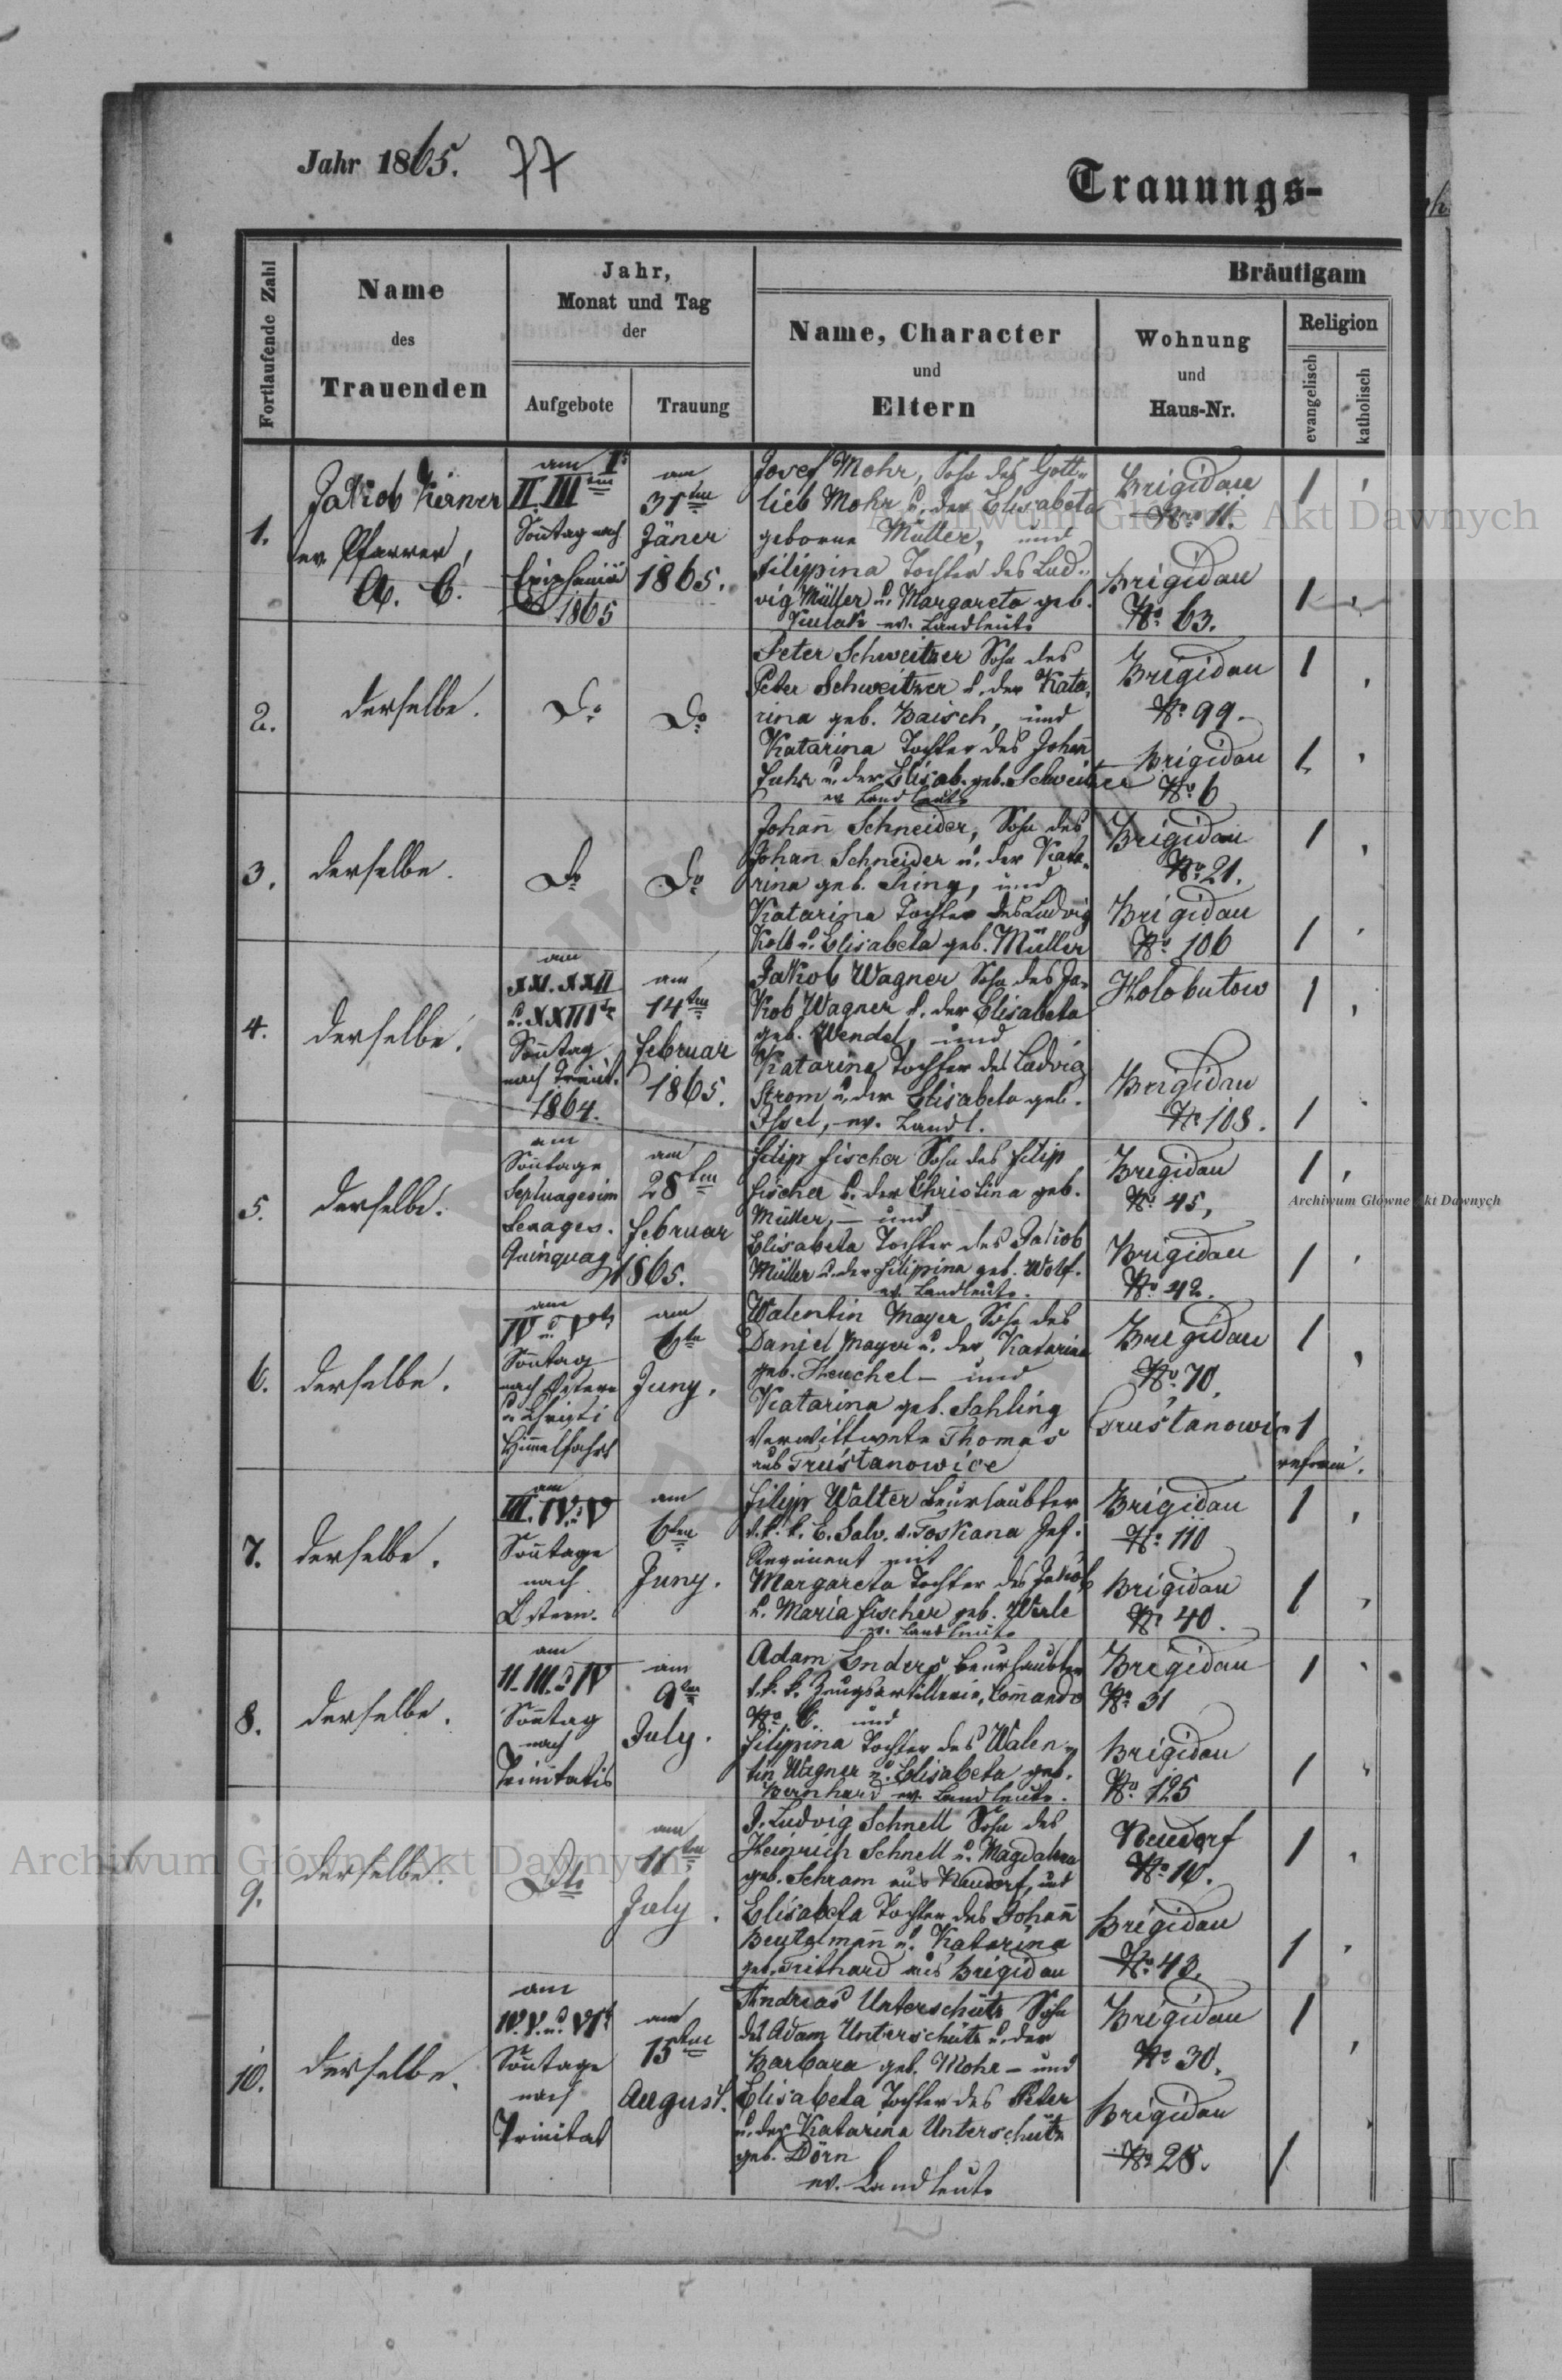 Jahr 1865. 77
Trauungs-
Fortlaufende Zahl
Name
des
Trauenden
Jahr,
Monat und Tag
der
Aufgebote
Trauung
Bräutigam
Name, Character
und
Eltern
Wohnung
und
Haus-Nr.
Religion
evangelisch
katholisch
1.
Jakob Kerner
ev. Pfarrer,
A. C.
am I
II. III ten
Sontag nach
Epiphaniä
1865
am
31ten
Jäner
1865.
Josef Mohr, Sohn des Gott-
lieb Mohr u. der Elisabeta
geborne Müller, und
Filippina Tochter des Lud-
vig Müller u. Margareta geb.
Kulak ev. Landleute
Brigidau
No 11.
Brigidau
No 63.
1
1
2.
derselbe.
Do
Do
Peter Schweitzer Sohn des
Peter Schweitzer u. der Kata-
rina geb. Baisch, und
Katarina Tochter des Johañ
Fuhr u. der Elisab. geb. Schweitzer
ev. Landleute
Brigidau
No 99.
Brigidau
No 6
1
1
3.
derselbe.
Do
Do
Johañ Schneider, Sohn des
Johañ Schneider u. der Kata-
rina geb. King, und
Katarina Tochter des Ludvig
Kolb u. Elisabeta geb. Müller
Brigidau
No 21.
Brigidau
No 106
1
1
4.
derselbe.
am
XXI. XXII
u. XXIII te
Soñtag
nach Trinit.
1864.
am
14ten
Februar
1865.
Jakob Wagner Sohn des Ja-
kob Wagner u. der Elisabeta
geb. Wendel, und
Katarina Tochter des Ludvig
Strom u. der Elisabeta geb.
Issel, ev. Landl.
Holobutow
Brigidau
No 108.
1
1
5.
derselbe.
am
Soñtage
Septuagesim
Sexages.
Quinquag
am
28ten
Februar
1865.
Filip Fischer Sohn des Filip
Fischer u. der Christina geb.
Müller, — und
Elisabeta Tochter des Jakob
Müller u. der Filipina geb. Wolf.
ev. Landleute.
Brigidau
No 45,
Brigidau
No 42.
1
1
6.
derselbe.
am
IV u. V ten
Soñtag
nach Ostern
u. Christi
Himmelfahrt
am
6ten
Juny.
Walentin Mayer Sohn des
Daniel Mayer u. der Katarina
geb. Heuchel — und
Katarina geb. Sahling
Verwittwete Thomas
aus Truśtanowice
Brigidau
No 70,
Truśtanowice
1
1
reform.
7.
derselbe.
am
III. IV. u. V
Soñtage
nach
Ostern.
am
6ten
Juny.
Filip Walter beurlaubter
d. k. k. E. Salv. v. Toskana Inf.
Regiment mit
Margareta Tochter des Jakob
u. Maria Fischer geb. Werle
ev. Landleute
Brigidau
No 110
Brigidau
No 40.
1
1
8.
derselbe.
am
II. III. u. IV
Soñtag
nach
Trinitatis
am
9ten
July.
Adam Enders beurlaubter
d. k. k. Zeugsartillerie, Comando
No 6. und
Filipina Tochter des Walen-
tin Wagner u. Elisabeta geb.
Bernhard ev. Landleute.
Brigidau
No 31
Brigidau
No 125
1
1
9.
derselbe.
Do
am
11ten
July.
J. Ludvig Schnell Sohn des
Heinrich Schnell u. Magdalena
geb. Schram aus Neudorf, und
Elisabeta Tochter des Johañ
Beutelmañ u. Katarina
geb. Trithard aus Brigidau
Neudorf
No 10.
Brigidau
No 43.
1
1
10.
derselbe.
am
IV. V. u. VI t
Soñtage
nach
Trinitat
am
15ten
August.
Andreas Unterschütz Sohn
des Adam Unterschütz u. der
Barbara geb. Mohr — und
Elisabeta Tochter des Peter
u. der Katarina Unterschütz
geb. Dörn
ev. Landleute
Brigidau
No 30.
Brigidau
No 28.
1
1
Archiwum Główne Akt Dawnych
Archiwum Główne Akt Dawnych
Archiwum Główne Akt Dawnych